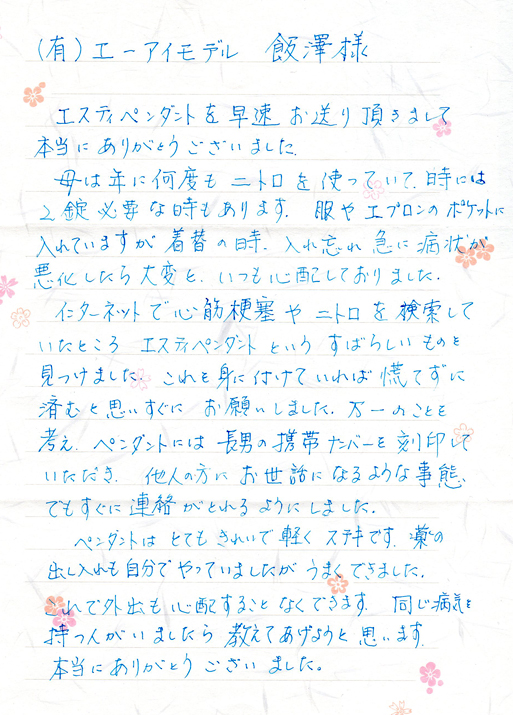 (有)エーアイモデル 飯澤様
エスティペンダントを早速お送り頂きまして
本当にありがとうございました.
母は年に何度もニトロを使っていて、時には
2錠必要な時もあります. 服やエプロンのポケットに
入れていますが着替の時、入れ忘れ急に病状が
悪化したら大変と、いつも心配しておりました.
インターネットで心筋梗塞やニトロを検索して
いたところ エスティペンダントというすばらしいものを
見つけました. これを身に付けていれば慌てずに
済むと思いすぐに お願いしました. 万一のことを
考え、ペンダントには長男の携帯ナンバーを刻印して
いただき、他人の方にお世話になるような事態、
でもすぐに連絡がとれるようにしました.
ペンダントはとてもきれいで軽くステキです. 薬の
出し入れも自分でやっていましたがうまくできました.
これで外出も心配することなくできます. 同じ病気を
持つ人がいましたら教えてあげようと思います.
本当にありがとうございました。